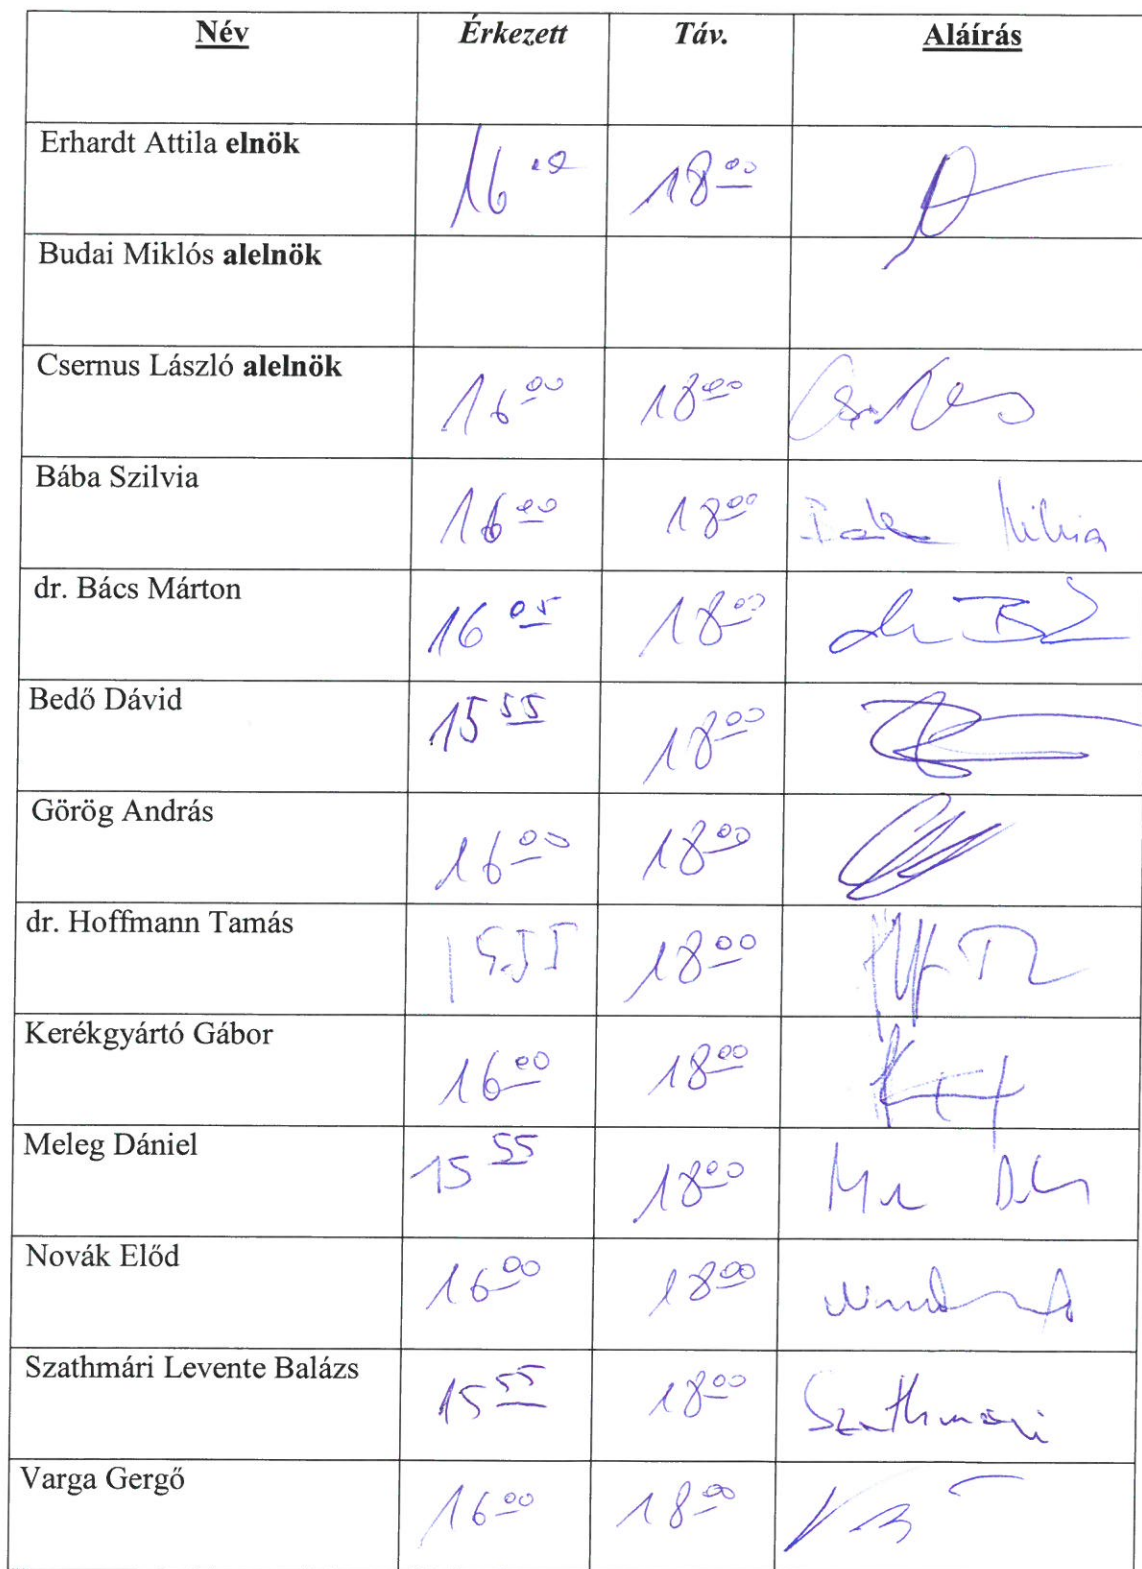 Név Érkezett Táv. Aláírás
Erhardt Attila elnök 16 18 00
Budai Miklós alelnök
Csernus László alelnök 16 00 18 00
Bába Szilvia 16 00 18 00
dr. Bács Márton 16 05 18 00
Bedő Dávid 15 55 18 00
Görög András 16 00 18 00
dr. Hoffmann Tamás 15.55 18 00
Kerékgyártó Gábor 16 00 18 00
Meleg Dániel 15 55 18 00
Novák Előd 16 00 18 00
Szathmári Levente Balázs 15 55 18 00 Szathmári
Varga Gergő 16 00 18 00